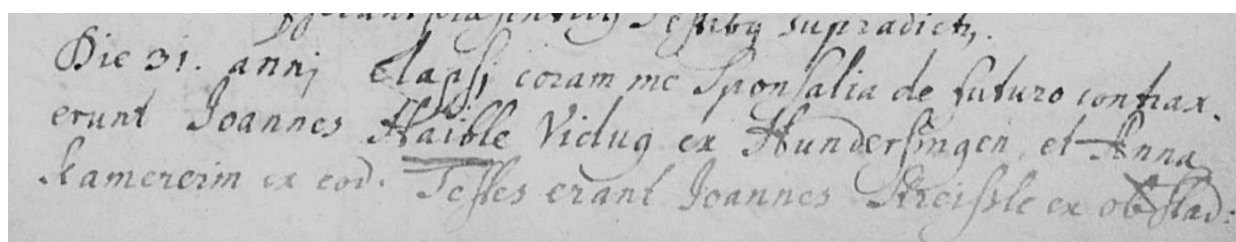 Testibg supradict,.
Die 31. annj Elapsj coram me Sponsalia de futuro contrax.
erunt Joannes Haible Vidug ex Hundersingen, et Anna
Kamererin ex eod. Testes erant Joannes Kreissle ex obstad: